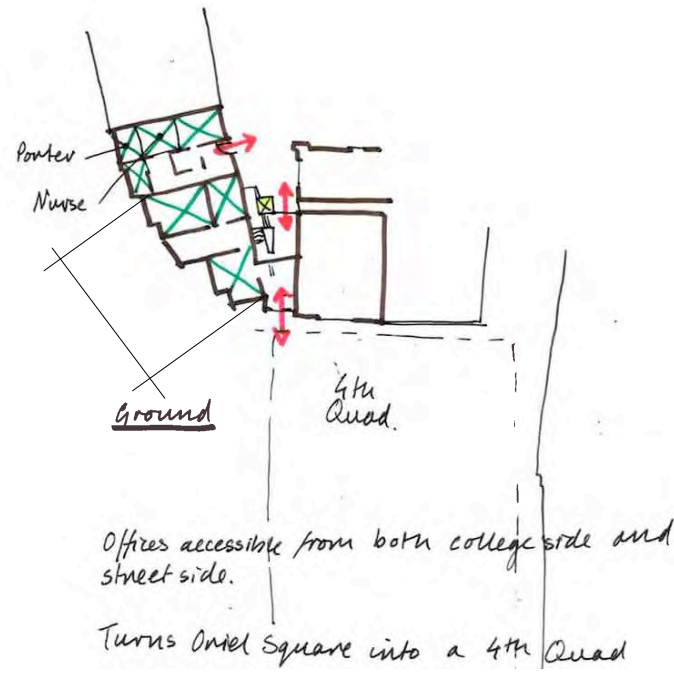 Porter
Nurse
Ground
4th
Quad.
Offices accessible from both college side and
street side.
Turns Oriel Square into a 4th Quad